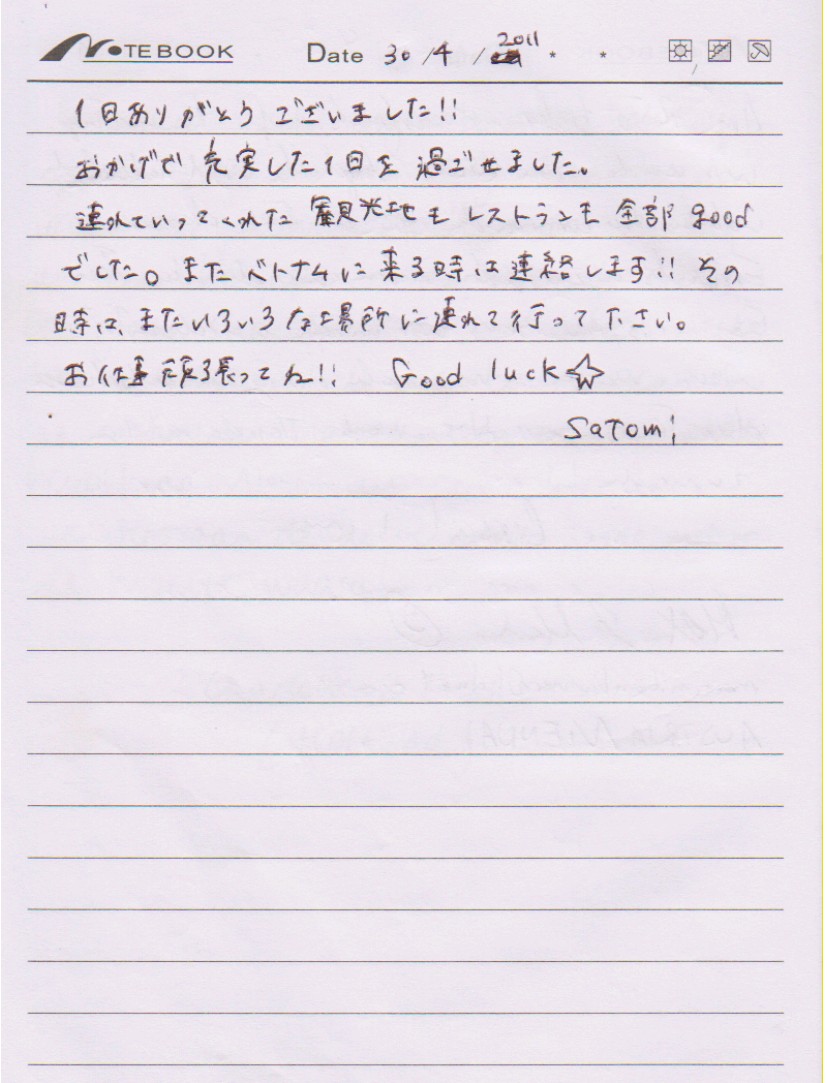 NOTEBOOK Date 30/4/2011 * *
1日ありがとうございました!!
おかげで充実した1日を過ごせました。
連れていってくれた観光地もレストランも全部good
でした。またベトナムに来る時は連絡します!! その
時は、またいろいろな場所に連れて行って下さい。
お仕事頑張ってね!! Good luck☆
Satomi